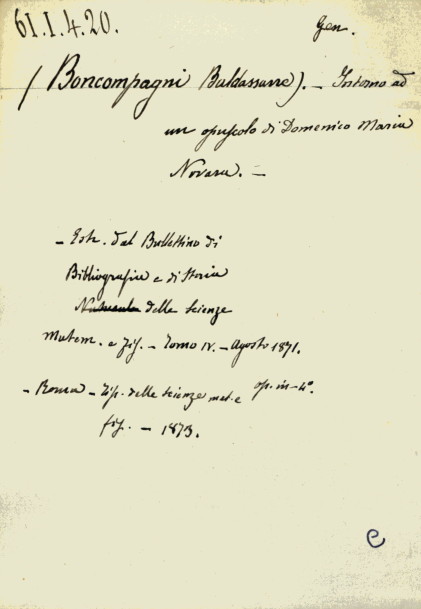 61.I.4.20.
Gen.
(Boncompagni Baldassarre). — Intorno ad
un opuscolo di Domenico Maria
Novara. —
— Estr. dal Bullettino di
Bibliografia e di Storia
delle Scienze
Matem. e Fis. — Tomo IV. — Agosto 1871.
— Roma — Tip. delle Scienze mat. e op. in-4°.
fis. — 1873.
e